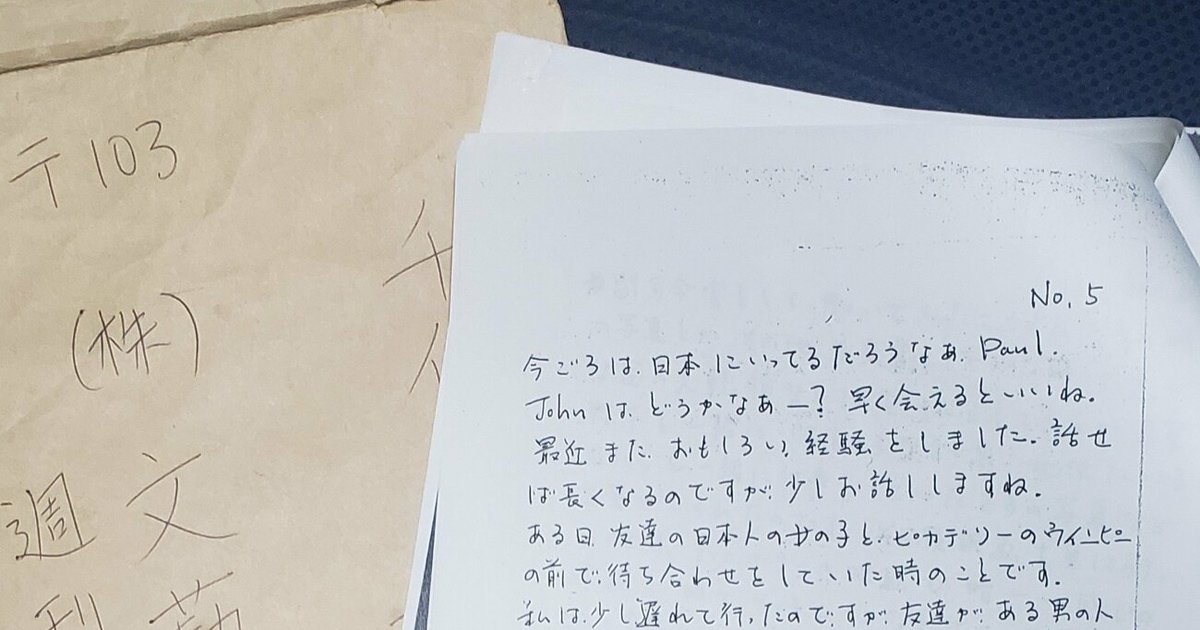 〒103
千
(株)
文
週刊
No. 5
今ごろは、日本にいってるだろうなぁ、Paul.
Johnは、どうかなあー? 早く会えるといいね。
最近また、おもしろい経騒をしました。話せ
ば長くなるのですが、少しお話ししますね。
ある日、友達の日本人の女の子と、ピカデリーのウインピー
の前で、待ち合わせをしていた時のことです。
私は、少し遅れて行ったのですが、友達が、ある男の人